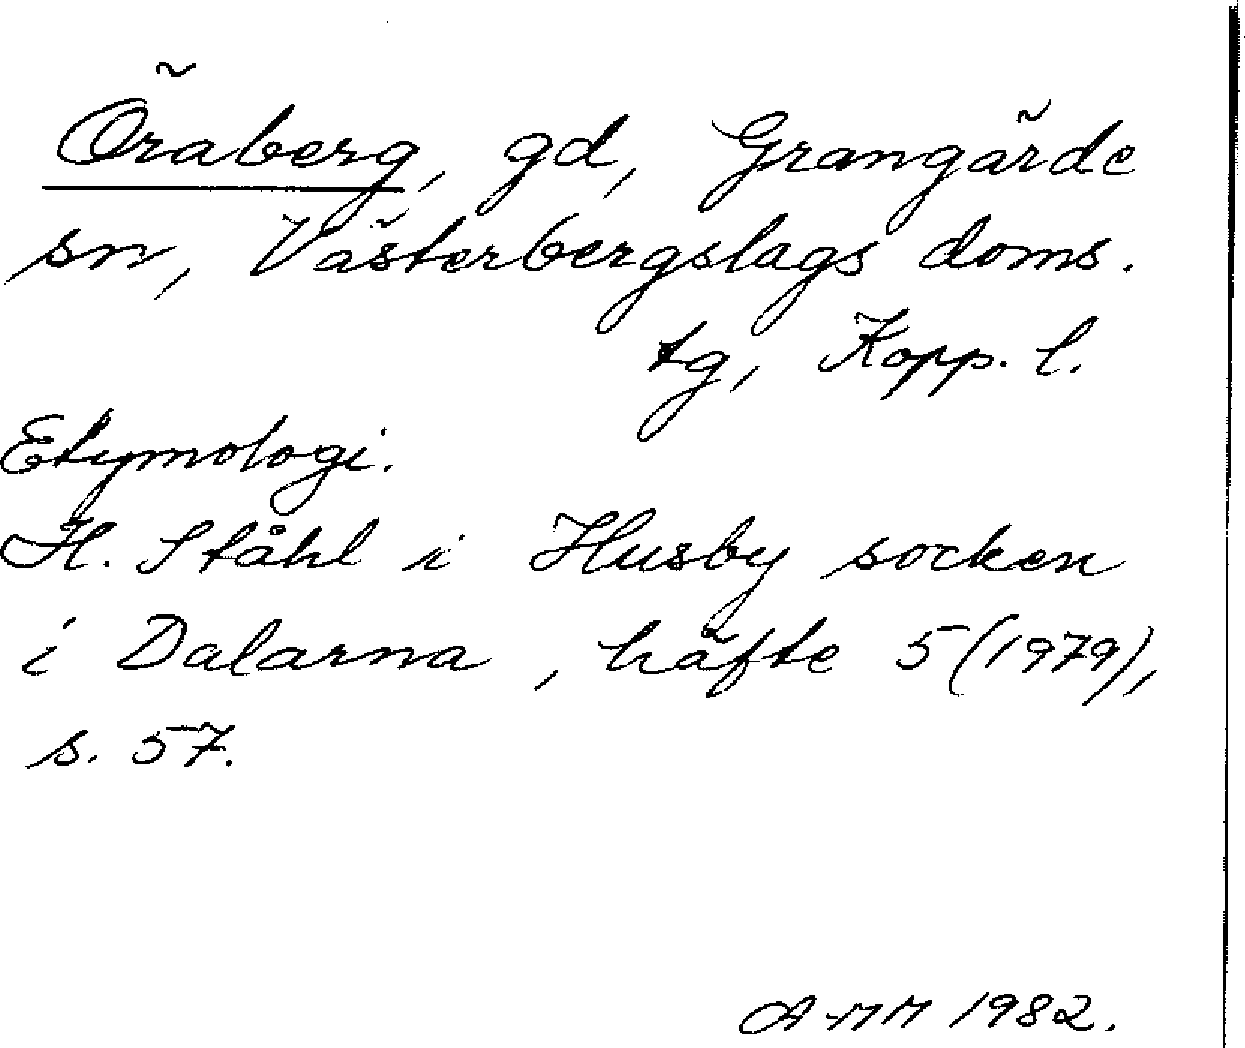 Öraberg, gd, Grangärde
sn, Västerbergslags doms.
tg, Kopp. l.
Etymologi.
H. Ståhl i Husby socken
i Dalarna, häfte 5 (1979),
s. 57.
A-MM 1982.